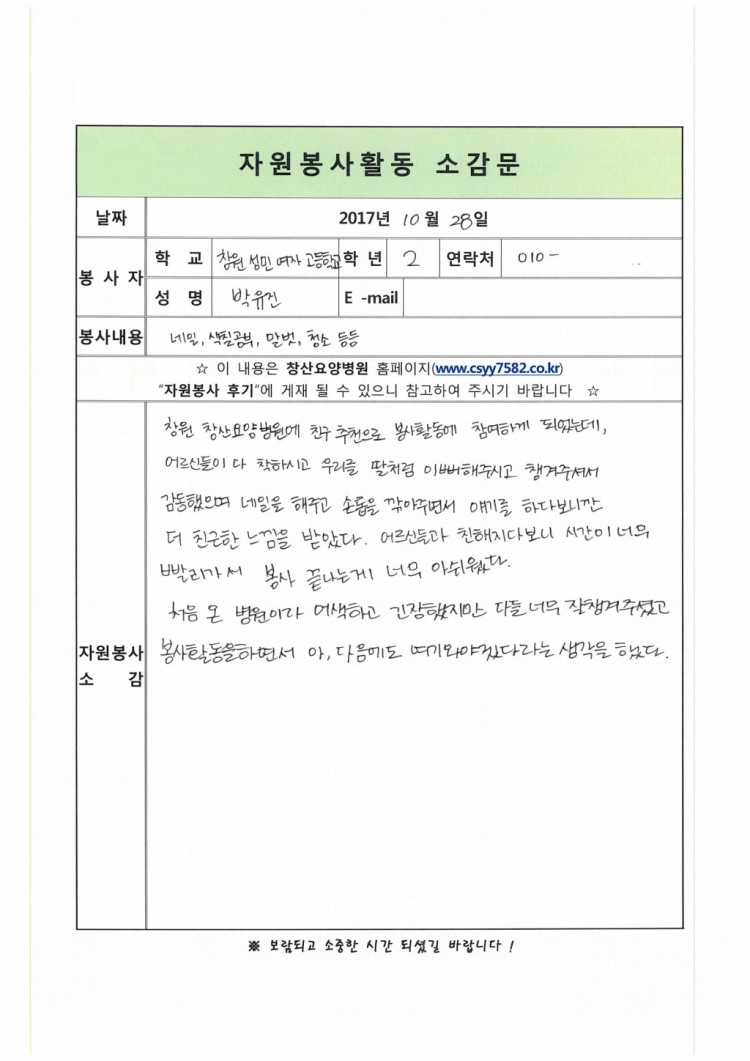 자원봉사활동 소감문
날짜 2017년 10월 28일
봉사자 학 교 창원 성민 여자 고등학교 학년 2 연락처 010-
성 명 박유진 E-mail
봉사내용 네일, 색칠공부, 말벗, 청소 등등
☆ 이 내용은 창산요양병원 홈페이지(www.csyy7582.co.kr)
"자원봉사 후기"에 게재 될 수 있으니 참고하여 주시기 바랍니다 ☆
창원 창산요양병원에 친구 추천으로 봉사활동에 참여하게 되었는데,
어르신들이 다 착하시고 우리를 딸처럼 이뻐해주시고 챙겨주셔서
감동했으며 네일을 해주고 손톱을 깎아주면서 얘기를 하다보니깐
더 친근한 느낌을 받았다. 어르신들과 친해지다보니 시간이 너무
빨리가서 봉사 끝나는게 너무 아쉬웠다.
처음 온 병원이라 어색하고 긴장했지만 다들 너무 잘챙겨주셨고
자원봉사 소 감 봉사활동을하면서 아, 다음에도 여기와야겠다라는 생각을 했다.
※ 보람되고 소중한 시간 되셨길 바랍니다 !